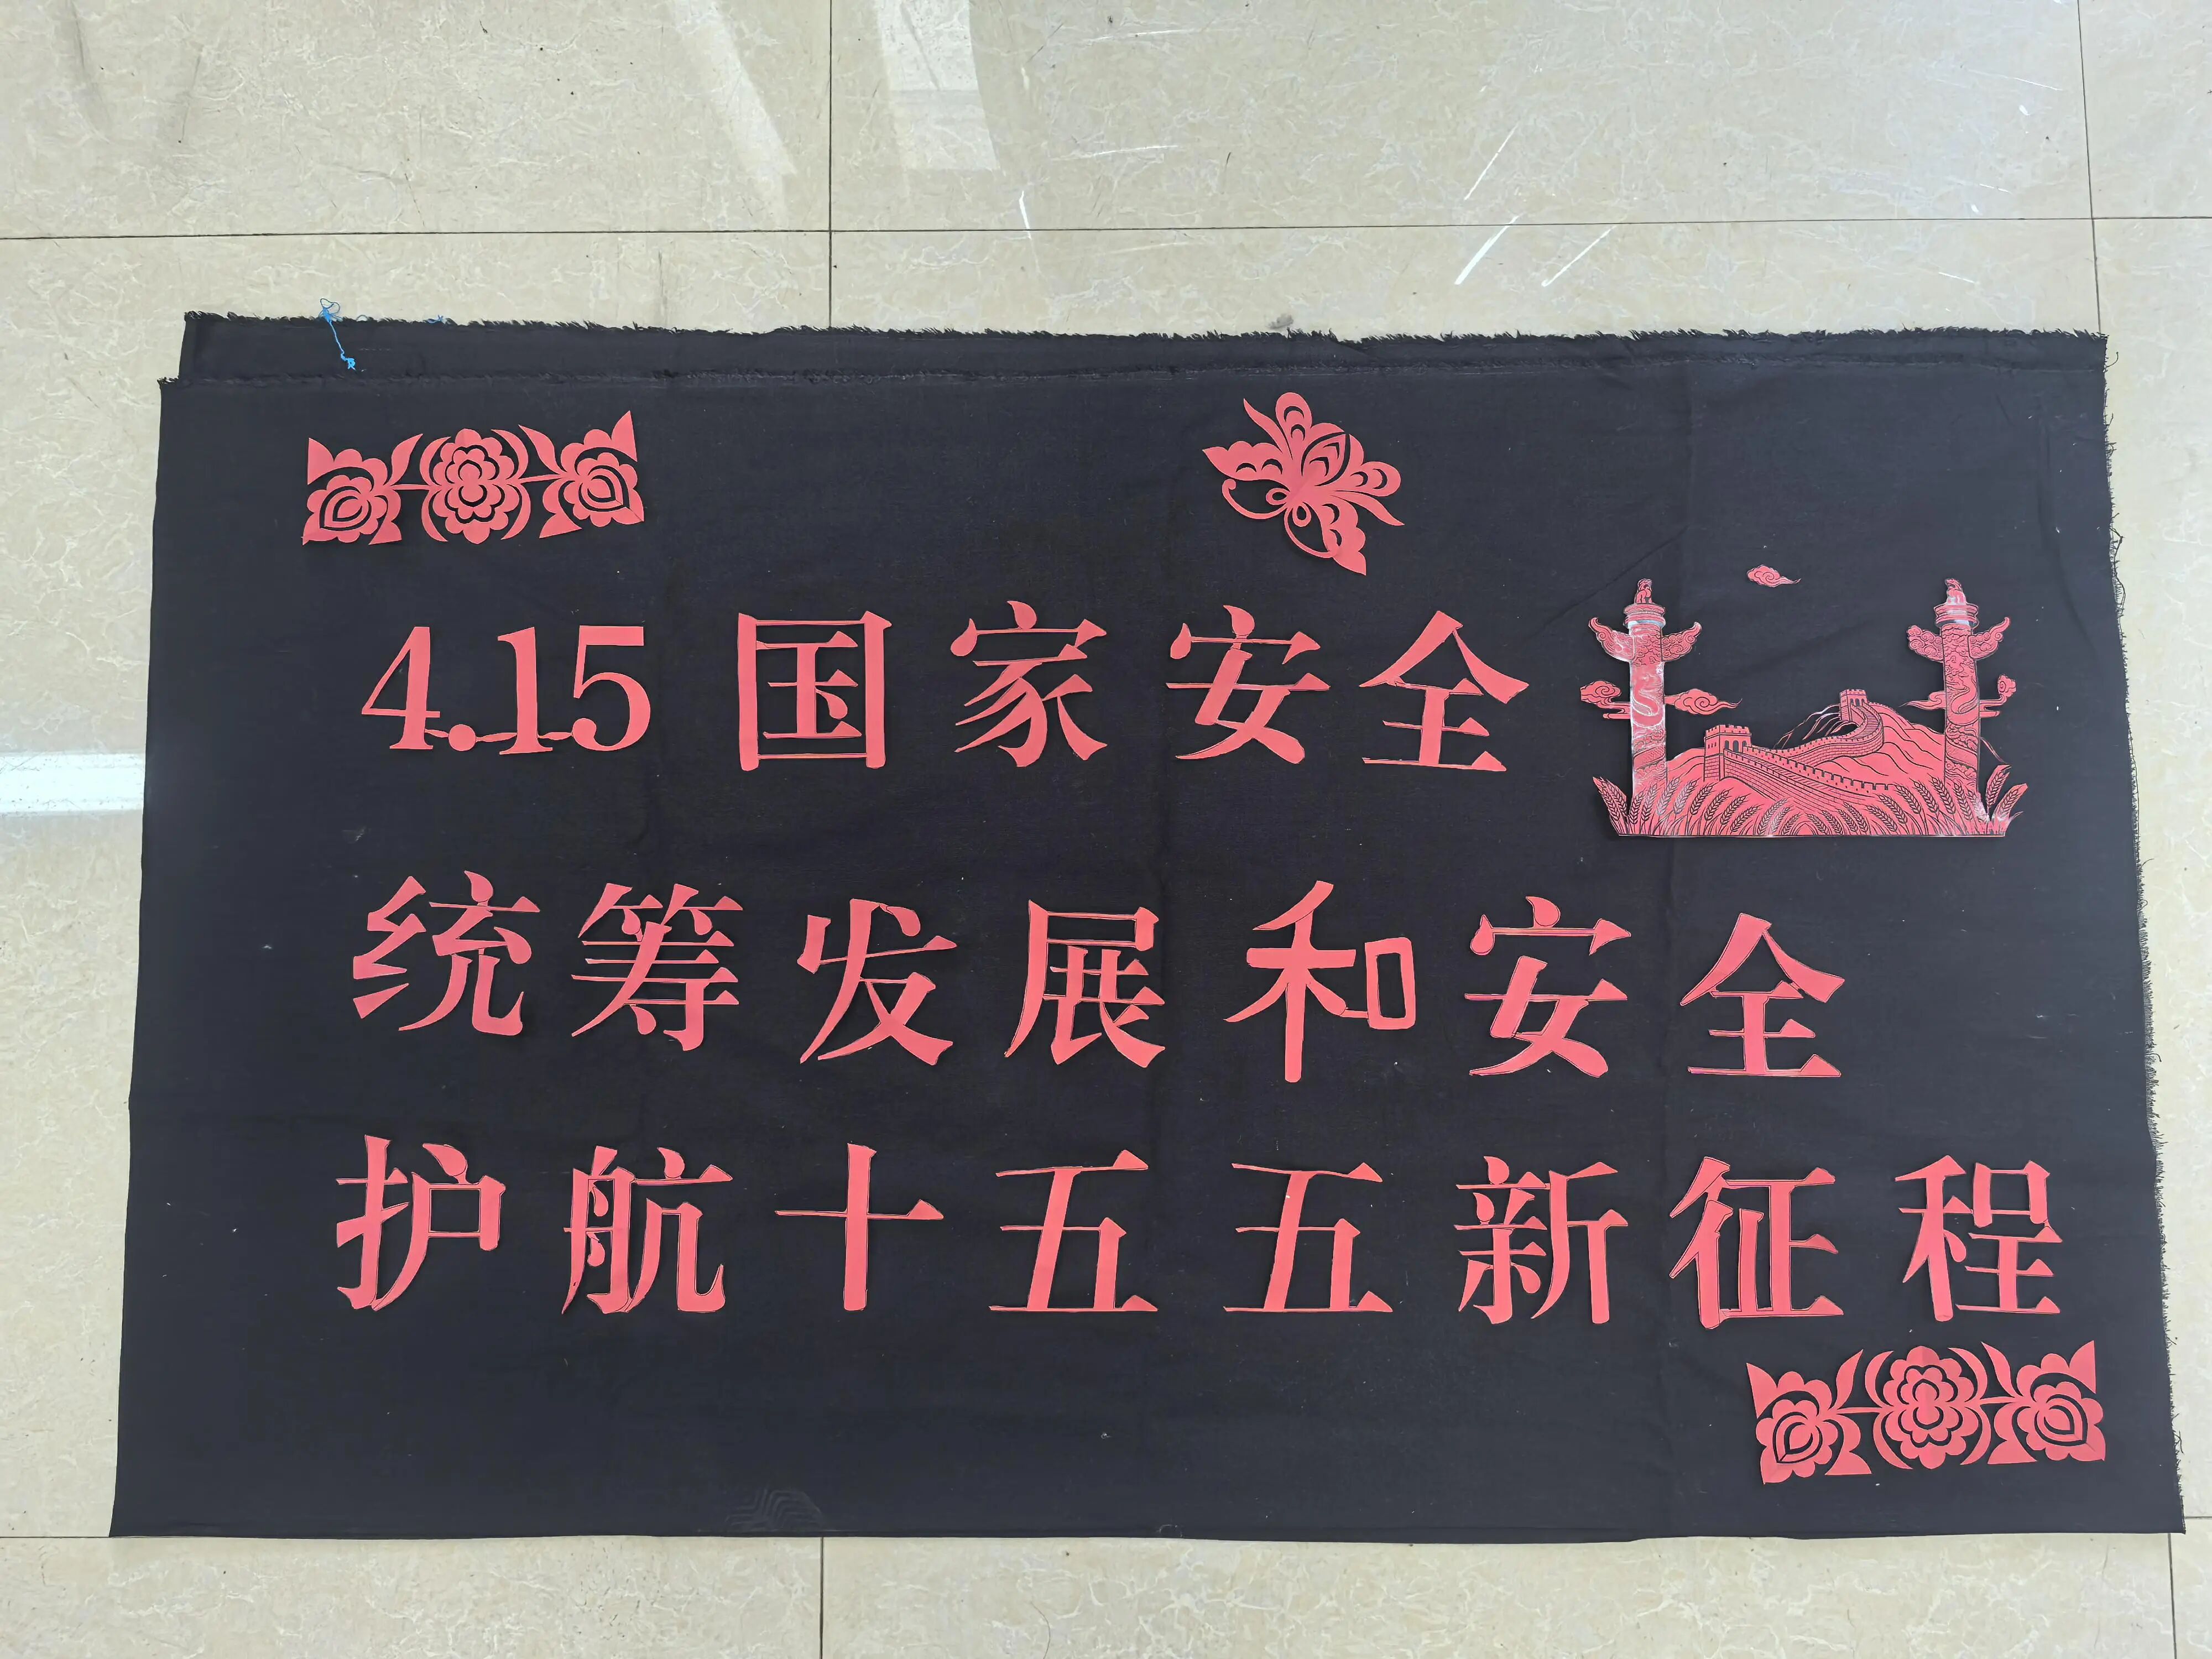 4.15 国家安全
统筹发展和安全
护航十五五新征程